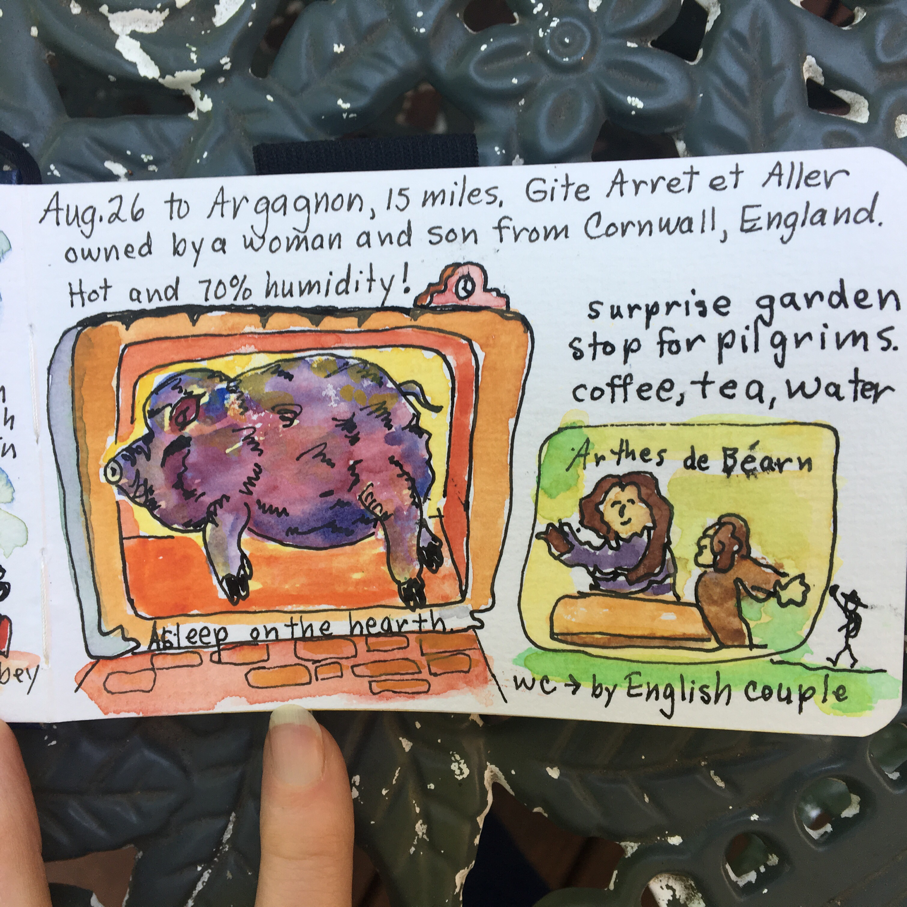 Aug. 26 to Argagnon, 15 miles. Gite Arret et Aller
owned by a woman and son from Cornwall, England.
Hot and 70% humidity!
surprise garden
stop for pilgrims.
coffee, tea, water
Arthes de Béarn
Asleep on the hearth.
wc → by English couple